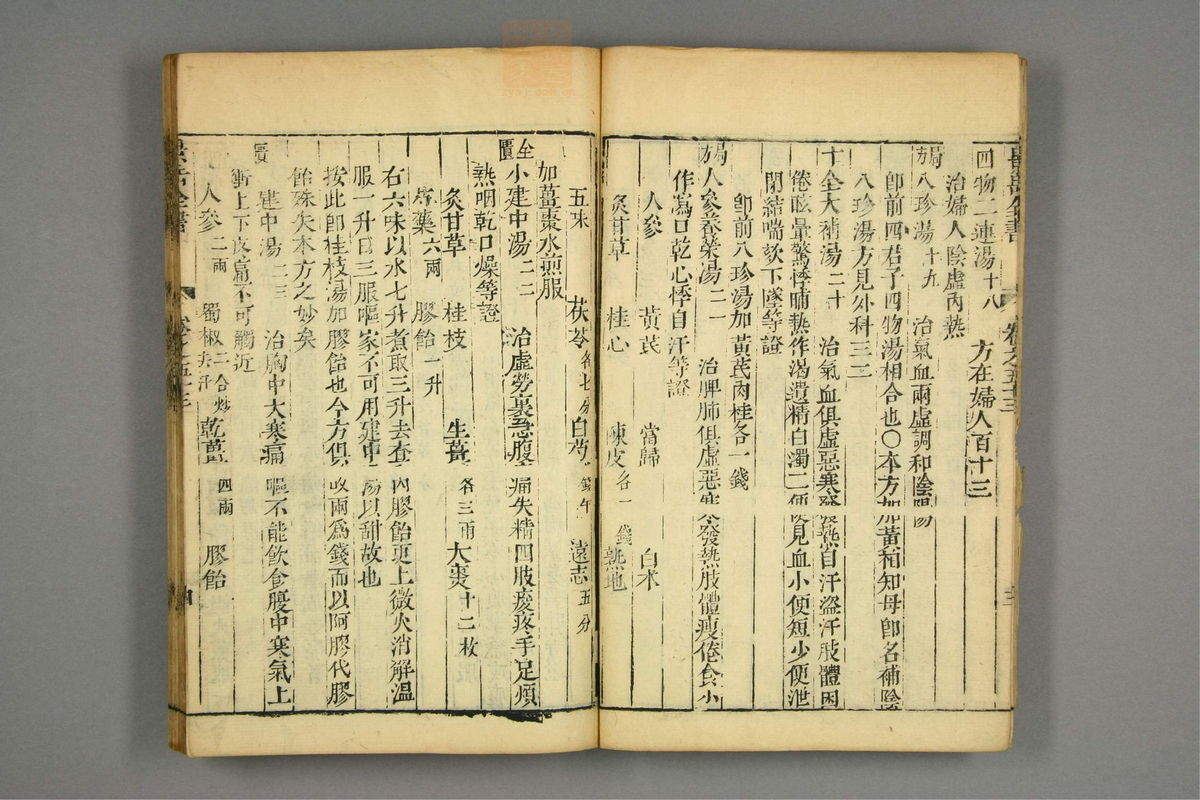 四物二連湯十八 方在婦人百十三
治婦人陰虛內熱
局方八珍湯十九 治氣血兩虛調和陰陽
卽前四君子四物湯相合也○本方加黃栢知母卽名補陰
八珍湯方見外科三二
十全大補湯二十 治氣血俱虛惡寒發熱自汗盜汗肢體困
倦眩暈驚悸晡熱作渴遺精白濁二便見血小便短少便泄
閉結喘欬下墜等證
卽前八珍湯加黃芪肉桂各一錢
局方人參養榮湯二一 治脾肺俱虛惡寒發熱肢體瘦倦食少
作瀉口乾心悸自汗等證
人參 黃芪 當歸 白朮
炙甘草 桂心 陳皮各一錢 熟地
五味 茯苓各七分 白芍 遠志五分
加薑棗水煎服
金匱小建中湯二二 治虛勞裏急腹痛失精四肢痠疼手足煩
熱咽乾口燥等證
炙甘草 桂枝 生薑各三兩 大棗十二枚
芍藥六兩 膠飴一升
右六味以水七升煮取三升去查內膠飴更上微火消解溫
服一升日三服嘔家不可用建中湯以甜故也
按此卽桂枝湯加膠飴也今方俱改兩爲錢而以阿膠代膠
飴殊失本方之妙矣
建中湯二三 治胸中大寒痛嘔不能飲食腹中寒氣上
衝上下痛不可觸近
人參二兩 蜀椒二合炒 乾薑四兩 膠飴